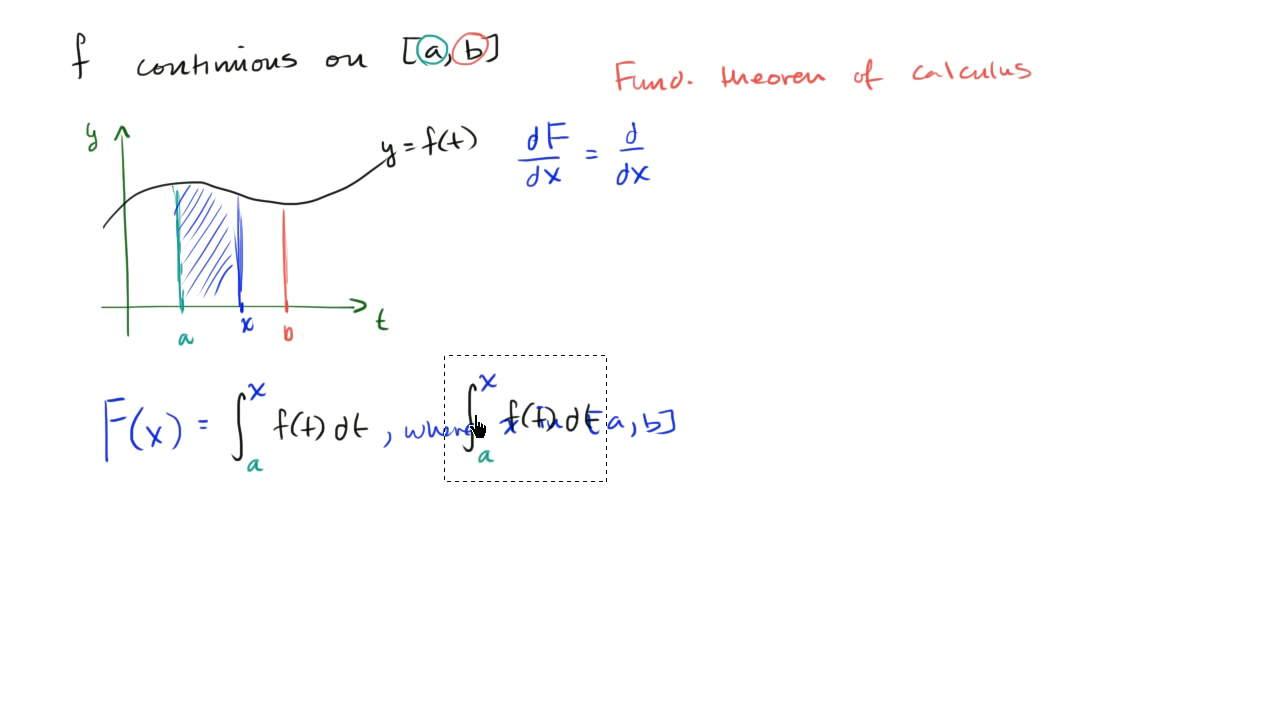 f continuous on [a, b]
Fund. theorem of calculus
y
y = f(t)
dF/dx = d/dx
t
a
x
b
F(x) = ∫ₐˣ f(t) dt , where x in [a, b]
∫ₐˣ f(t) dt